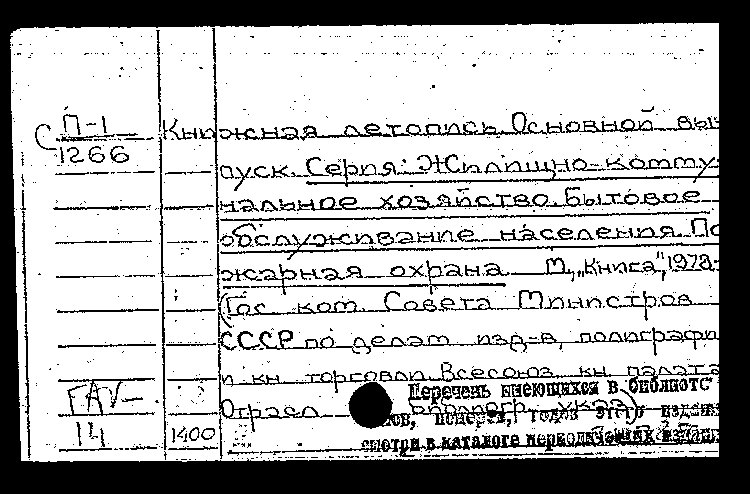 С П-1
1266
Книжная летопись. Основной вы-
пуск. Серия: Жилищно-комму-
нальное хозяйство. Бытовое
обслуживание населения. По-
жарная охрана М., „Книга",
(Гос. ком. Совета Министров
СССР по делам изд-в, полиграфи
и кн. торговли. Всесоюз. кн. палата
FAV-
14
1400
Отрасл. библиогр. указ.)
Перечень имеющихся в библиоте
номеров, годов этого издания
смотри в каталоге периодических изданий